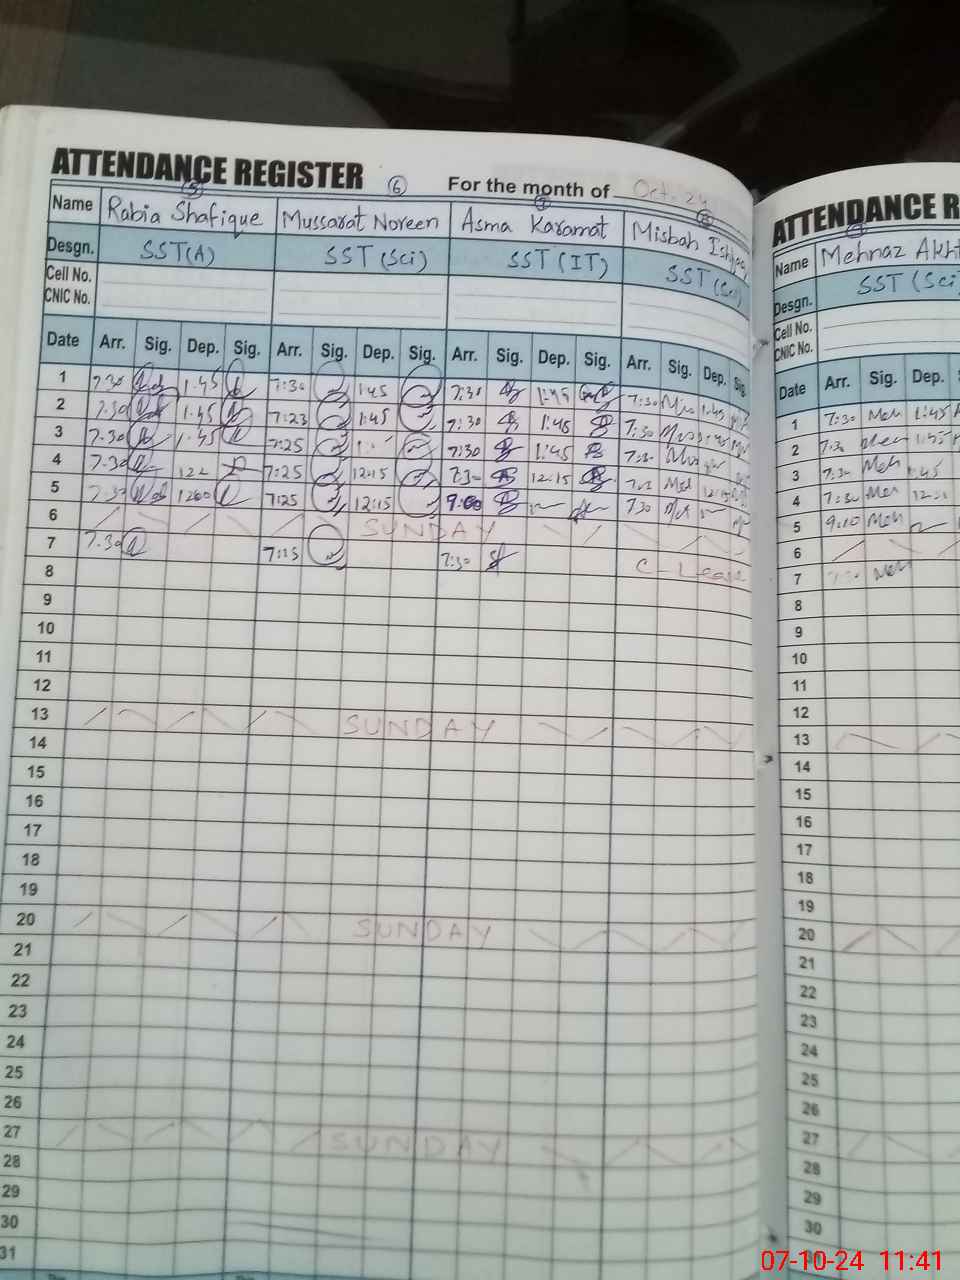 ATTENDANCE REGISTER 6 For the month of Oct. 24
5 7 8
Name Rabia Shafique Mussarat Noreen Asma Karamat Misbah
Desgn. SST(A) SST (Sci) SST (IT) SST (Sci)
Cell No.
CNIC No.
Date Arr. Sig. Dep. Sig. Arr. Sig. Dep. Sig. Arr. Sig. Dep. Sig. Arr. Sig. Dep. Sig.
1 7:30 1:45 7:30 1:45 7:30 1:45 7:30 1:45
2 7:30 1:45 7:23 1:45 7:30 1:45 7:30
3 7:30 1:45 7:25 7:30 1:45
4 7:30 7:25 12:15 7:30 12:15
5 7:30 1200 7:25 12:15 9:00 7:30
6 SUNDAY
7 7:30 7:25 7:30 C-Leave
8
9
10
11
12
13 SUNDAY
14
15
16
17
18
19
20 SUNDAY
21
22
23
24
25
26
27 SUNDAY
28
29
30
31
ATTENDANCE R
Name Mehnaz Akht
Desgn. SST (Sci)
Cell No.
CNIC No.
Date Arr. Sig. Dep.
1 7:30 Meh 1:45
2 7:30 Meh 1:45
3 7:30 Meh 1:45
4 7:30 Meh
5 9:10 Meh
6
7 7:30 Meh
8
9
10
11
12
13
14
15
16
17
18
19
20
21
22
23
24
25
26
27
28
29
30
31
07-10-24 11:41